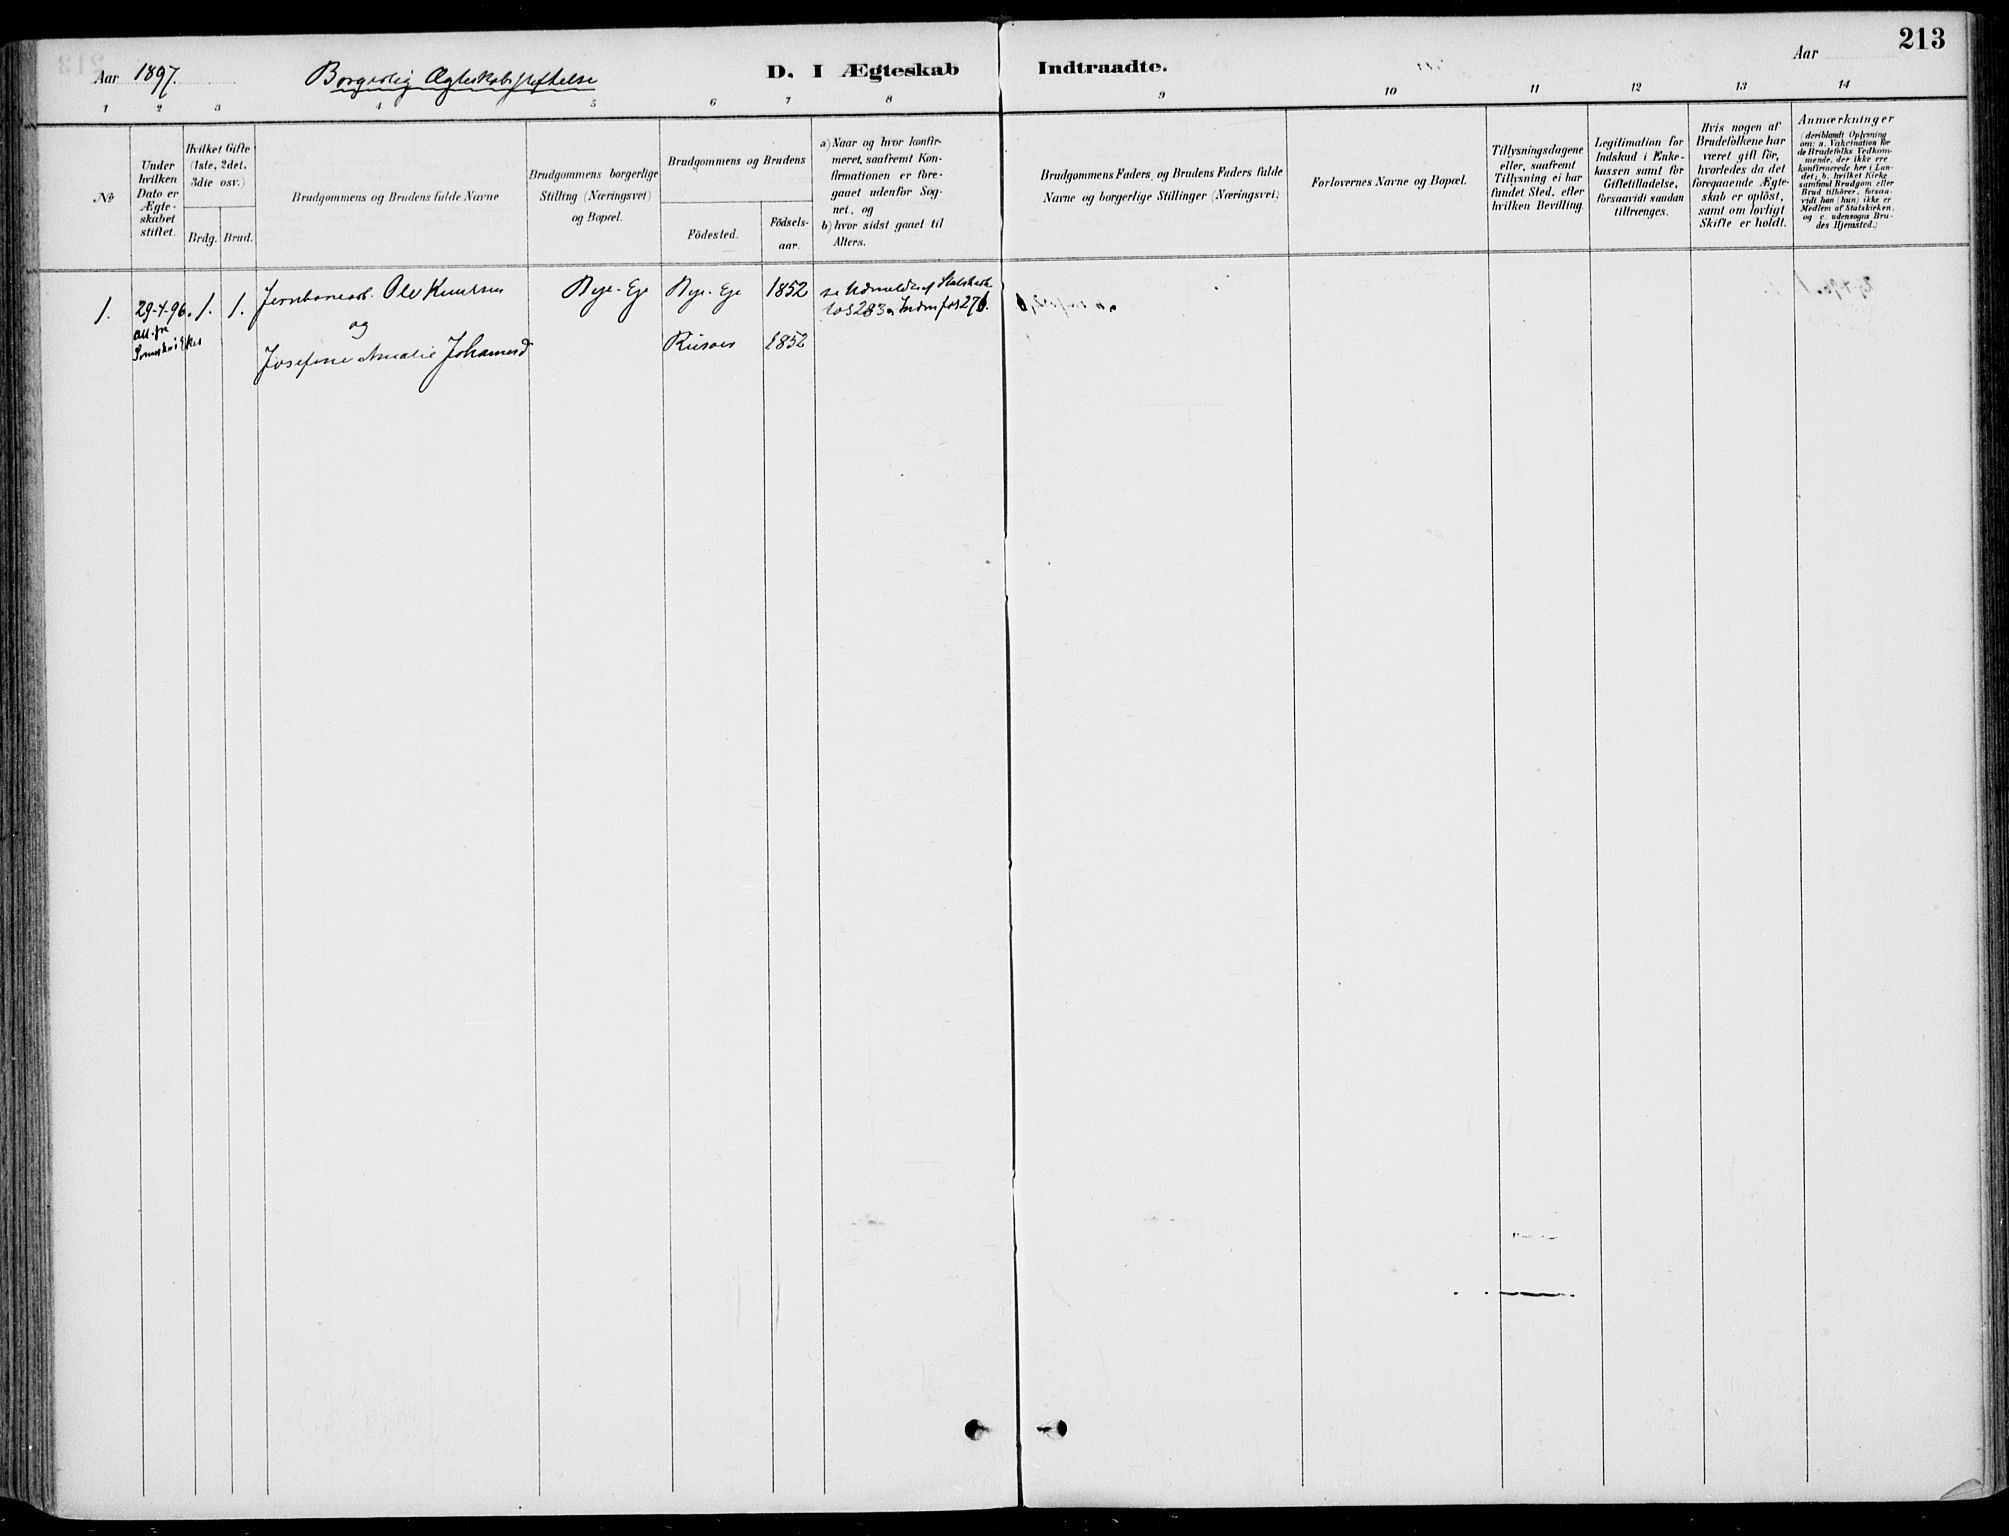 213
Aar 1897.
Borgerlig Ægteskabsstiftelse
D. I Ægteskab Indtraadte.
Aar
1 2 3 4 5 6 7 8 9 10 11 12 13 14
№
Under
hvilken
Dato er
Ægte-
skabet
stiftet.
Hvilket Gifte
(1ste, 2det,
3die osv.)
Brdg. Brud.
Brudgommens og Brudens fulde Navne
Brudgommens borgerlige
Stilling (Næringsvei)
og Bopæl.
Brudgommens og Brudens
Födested.
Födsels-
aar.
a) Naar og hvor konfir-
meret, saafremt Kon-
firmationen er fore-
gaaet udenfor Sog-
net, og
b) hvor sidst gaaet til
Alters.
Brudgommens Faders, og Brudens Faders fulde
Navne og borgerlige Stillinger (Næringsvei)
Forlovernes Navne og Bopæl.
Tillysningsdagene
eller, saafremt
Tillysning ei har
fundet Sted, efter
hvilken Bevilling.
Legitimation for
Indskud i Enke-
kassen samt for
Giftetilladelse,
forsaavidt saadan
tiltrænges.
Hvis nogen af
Brudefolkene har
været gift för,
hvorledes da det
foregaaende Ægte-
skab er oplöst,
samt om lovligt
Skifte er holdt.
Anmærkninger
(deriblandt Oplysning
om: a. Vakcination for
de Brudefolks Vedkom-
mende, der ikke ere
konfirmerede her i Lan-
det; b. hvilket Kirke
samfund Brudgom eller
Brud tilhörer, forsaa-
vidt han (hun) ikke er
Medlem af Statskirken,
og c. udensogns Bru-
des Hjemsted.)
1. 29-4-96. 1. 1. Jernbanearb. Ole Knutsen Bye-Eje Bye-Eje 1852
att. fra
og
Josefine Amalie Johannesd 1852
se Udmeldte af Statskirk
fol 283 Indm fol 276.